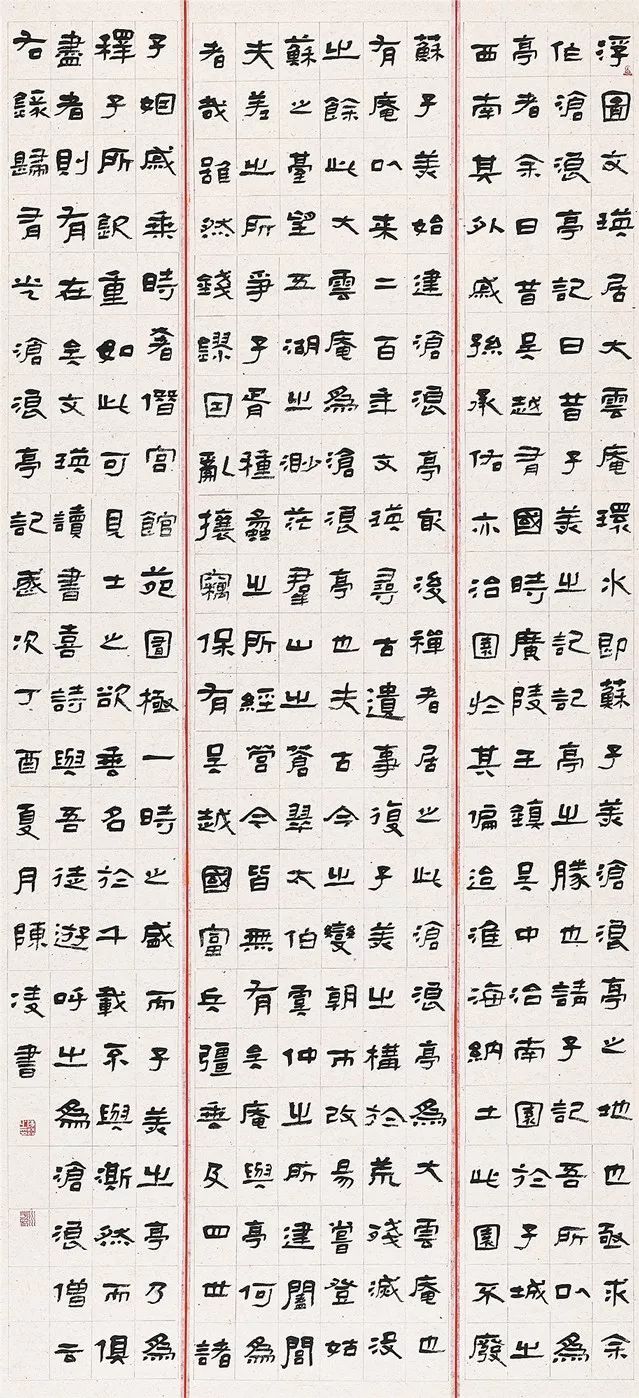 浮圖文瑛居大雲庵環水即蘇子美滄浪亭之地也亟求余
作滄浪亭記曰昔子美之記記亭之勝也請子記吾所以為
亭者余曰昔吳越有國時廣陵王鎮吳中治南園於子城之
西南其外戚孫承佑亦治園於其偏迨淮海納土此園不廢
蘇子美始建滄浪亭最後禪者居之此滄浪亭為大雲庵也
有庵以來二百年文瑛尋古遺事復子美之構於荒殘滅沒
之餘此大雲庵為滄浪亭也夫古今之變朝市改易嘗登姑
蘇之臺望五湖之渺茫羣山之蒼翠太伯虞仲之所建闔閭
夫差之所爭子胥種蠡之所經營今皆無有矣庵與亭何為
者哉雖然錢鏐因亂攘竊保有吳越國富兵彊垂及四世諸
子姻戚乘時奢僭宮館苑囿極一時之盛而子美之亭乃為
釋子所欽重如此可見士之欲垂名於千載不與澌然而俱
盡者則有在矣文瑛讀書喜詩與吾徒遊呼之為滄浪僧云
右錄歸有光滄浪亭記歲次丁酉夏月陳凌書